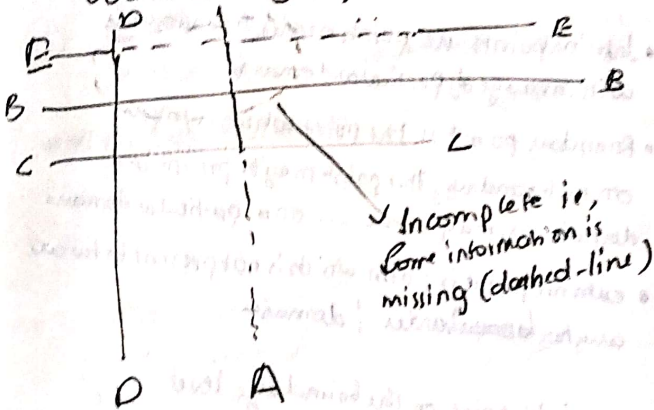 D
E E
B B
C C
Incomplete ie,
Some information is
missing (dashed-line)
D A